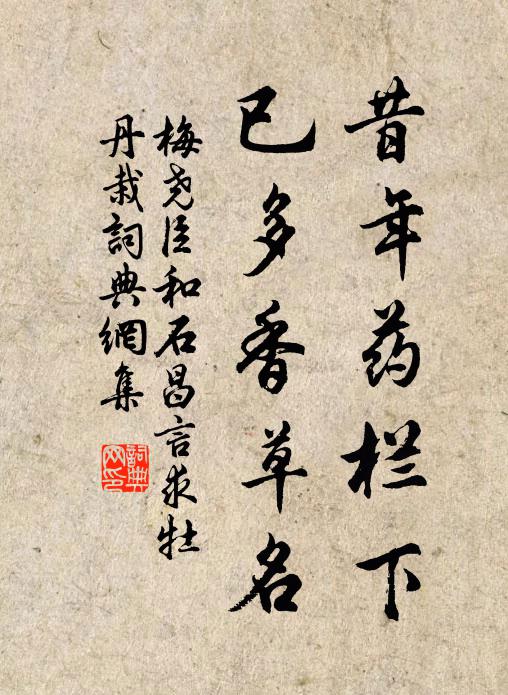 昔年药栏下
已多香草名
梅尧臣和石昌言求牡
丹栽詞典網集
詞典
网印